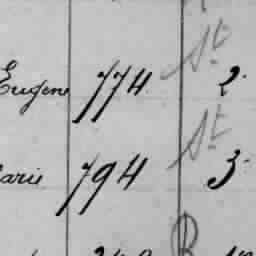 St
Eugene 774. 2.
St
Marie 794 3.